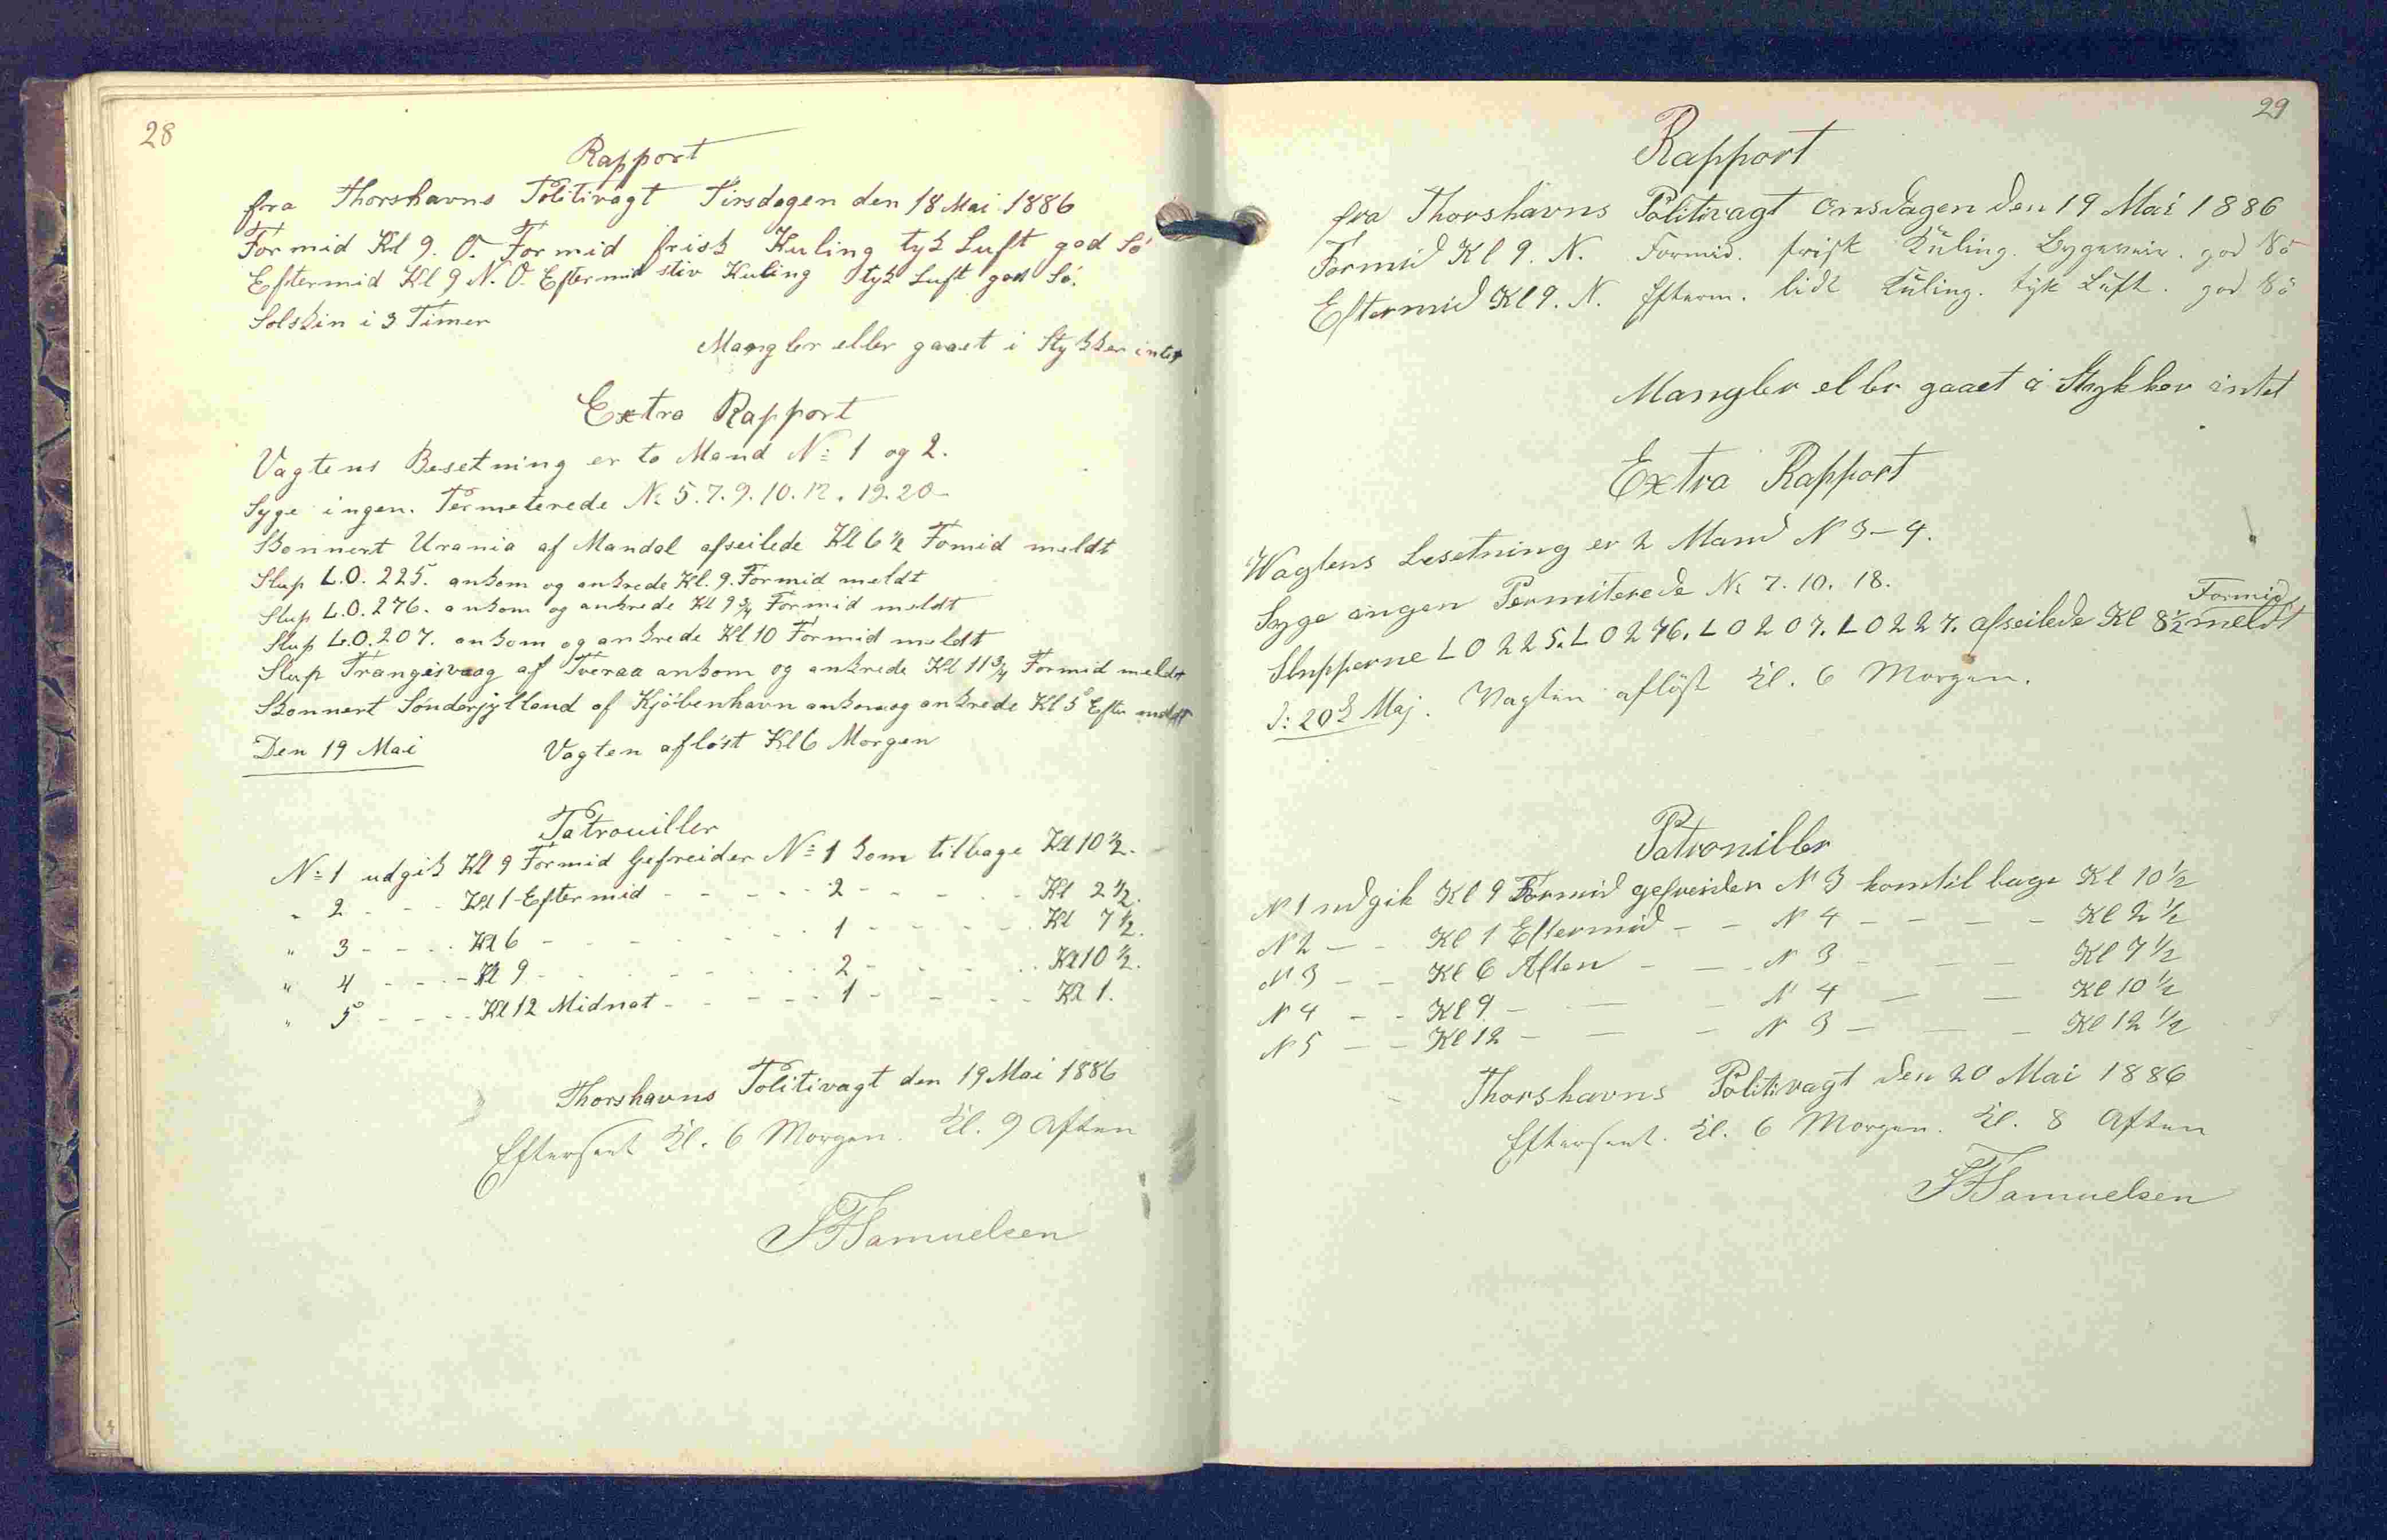 28
Rapport
fra Thorshavns Politivagt Tirsdagen den 18 Mai 1886
Formid Kl 9. O. Formid frisk Kuling tyk Luft god Sö
Eftermid Kl 9 N. O. Eftermid stiv Kuling tyk Luft god Sö.
Solskin i 3 Timer
Mangler eller gaaet i Stykker intet
Extra Rapport
Vagtens Besetning er to Mand No 1 og 2.
Syge ingen. Permeterede No 5. 7. 9. 10. 12. 19. 20
Skonnert Urania af Mandal afseilede Kl 6 1/2 Fomid meldt
Slup L.O. 225. ankom og ankrede Kl. 9. Formid meldt
Slup L.O. 276. ankom og ankrede Kl 9 3/4 Formid meldt
Slup L.O. 207. ankom og ankrede Kl 10 Formid meldt
Slup Trangisvaag af Tveraa ankom og ankrede Kl 11 3/4 Formid meldt
Skonnert Sönderjylland af Kjöbenhavn ankom og ankrede Kl 5 Efter meldt
Den 19 Mai Vagten aflöst Kl 6 Morgen
Patrouiller
No 1 udgik Kl 9 Formid Gefreider No 1 kom tilbage Kl 10 1/2.
" 2 - - - Kl 1 Eftermid - - - - - 2 - - - - Kl 2 1/2.
" 3 - - - - Kl 6 - - - - - - - 1 - - - - - Kl 7 1/2.
" 4 - - - - Kl 9 - - - - - - - 2 - - - - Kl 10 1/2.
" 5 - - - - Kl 12 Midnat - - - - - 1 - - - - Kl 1.
Thorshavns Politivagt den 19 Mai 1886
Efterseet Kl. 6 Morgen. Kl. 9 Aften
Samuelsen
29
Rapport
fra Thorshavns Politivagt Onsdagen den 19 Mai 1886
Formid Kl 9. N. Formid. frisk Kuling. Bygeveir. god Sö
Eftermid Kl 9. N. Efterm. lidt Kuling. tyk Luft. god Sö
Mangler eller gaaet i Stykker intet
Extra Rapport
Wagtens Besetning er 2 Mand N 3-4.
Syge ingen Permiterede No 7. 10. 18.
Formid
Slupperne L O 225. L O 276. L O 207. L O 227. afseilede Kl 8 1/2 meldt
d: 20d Maj. Vagten aflöst Kl. 6 Morgen.
Patrouiller
N 1 udgik Kl 9 Formid gefreiden N 3 kom til bage Kl 10 1/2
N 2 - - Kl 1 Eftermid - - N 4 - - - - Kl 2 1/2
N 3 - - Kl 6 Aften - - - N 3 - - - Kl 7 1/2
N 4 - - Kl 9 - - - N 4 - - Kl 10 1/2
N 5 - - Kl 12 - - - N 3 - - - Kl 12 1/2
Thorshavns Politivagt den 20 Mai 1886
Efterseet. Kl. 6 Morgen. Kl. 8 Aften
Samuelsen